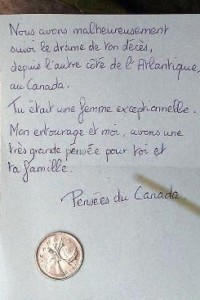 Nous avons malheureusement
suivi le drame de ton décès,
depuis l'autre côté de l'Atlantique,
au Canada.
Tu était une femme exceptionnelle.
Mon entourage et moi, avons une
très grande pensée pour toi et
ta famille.
Pensées du Canada